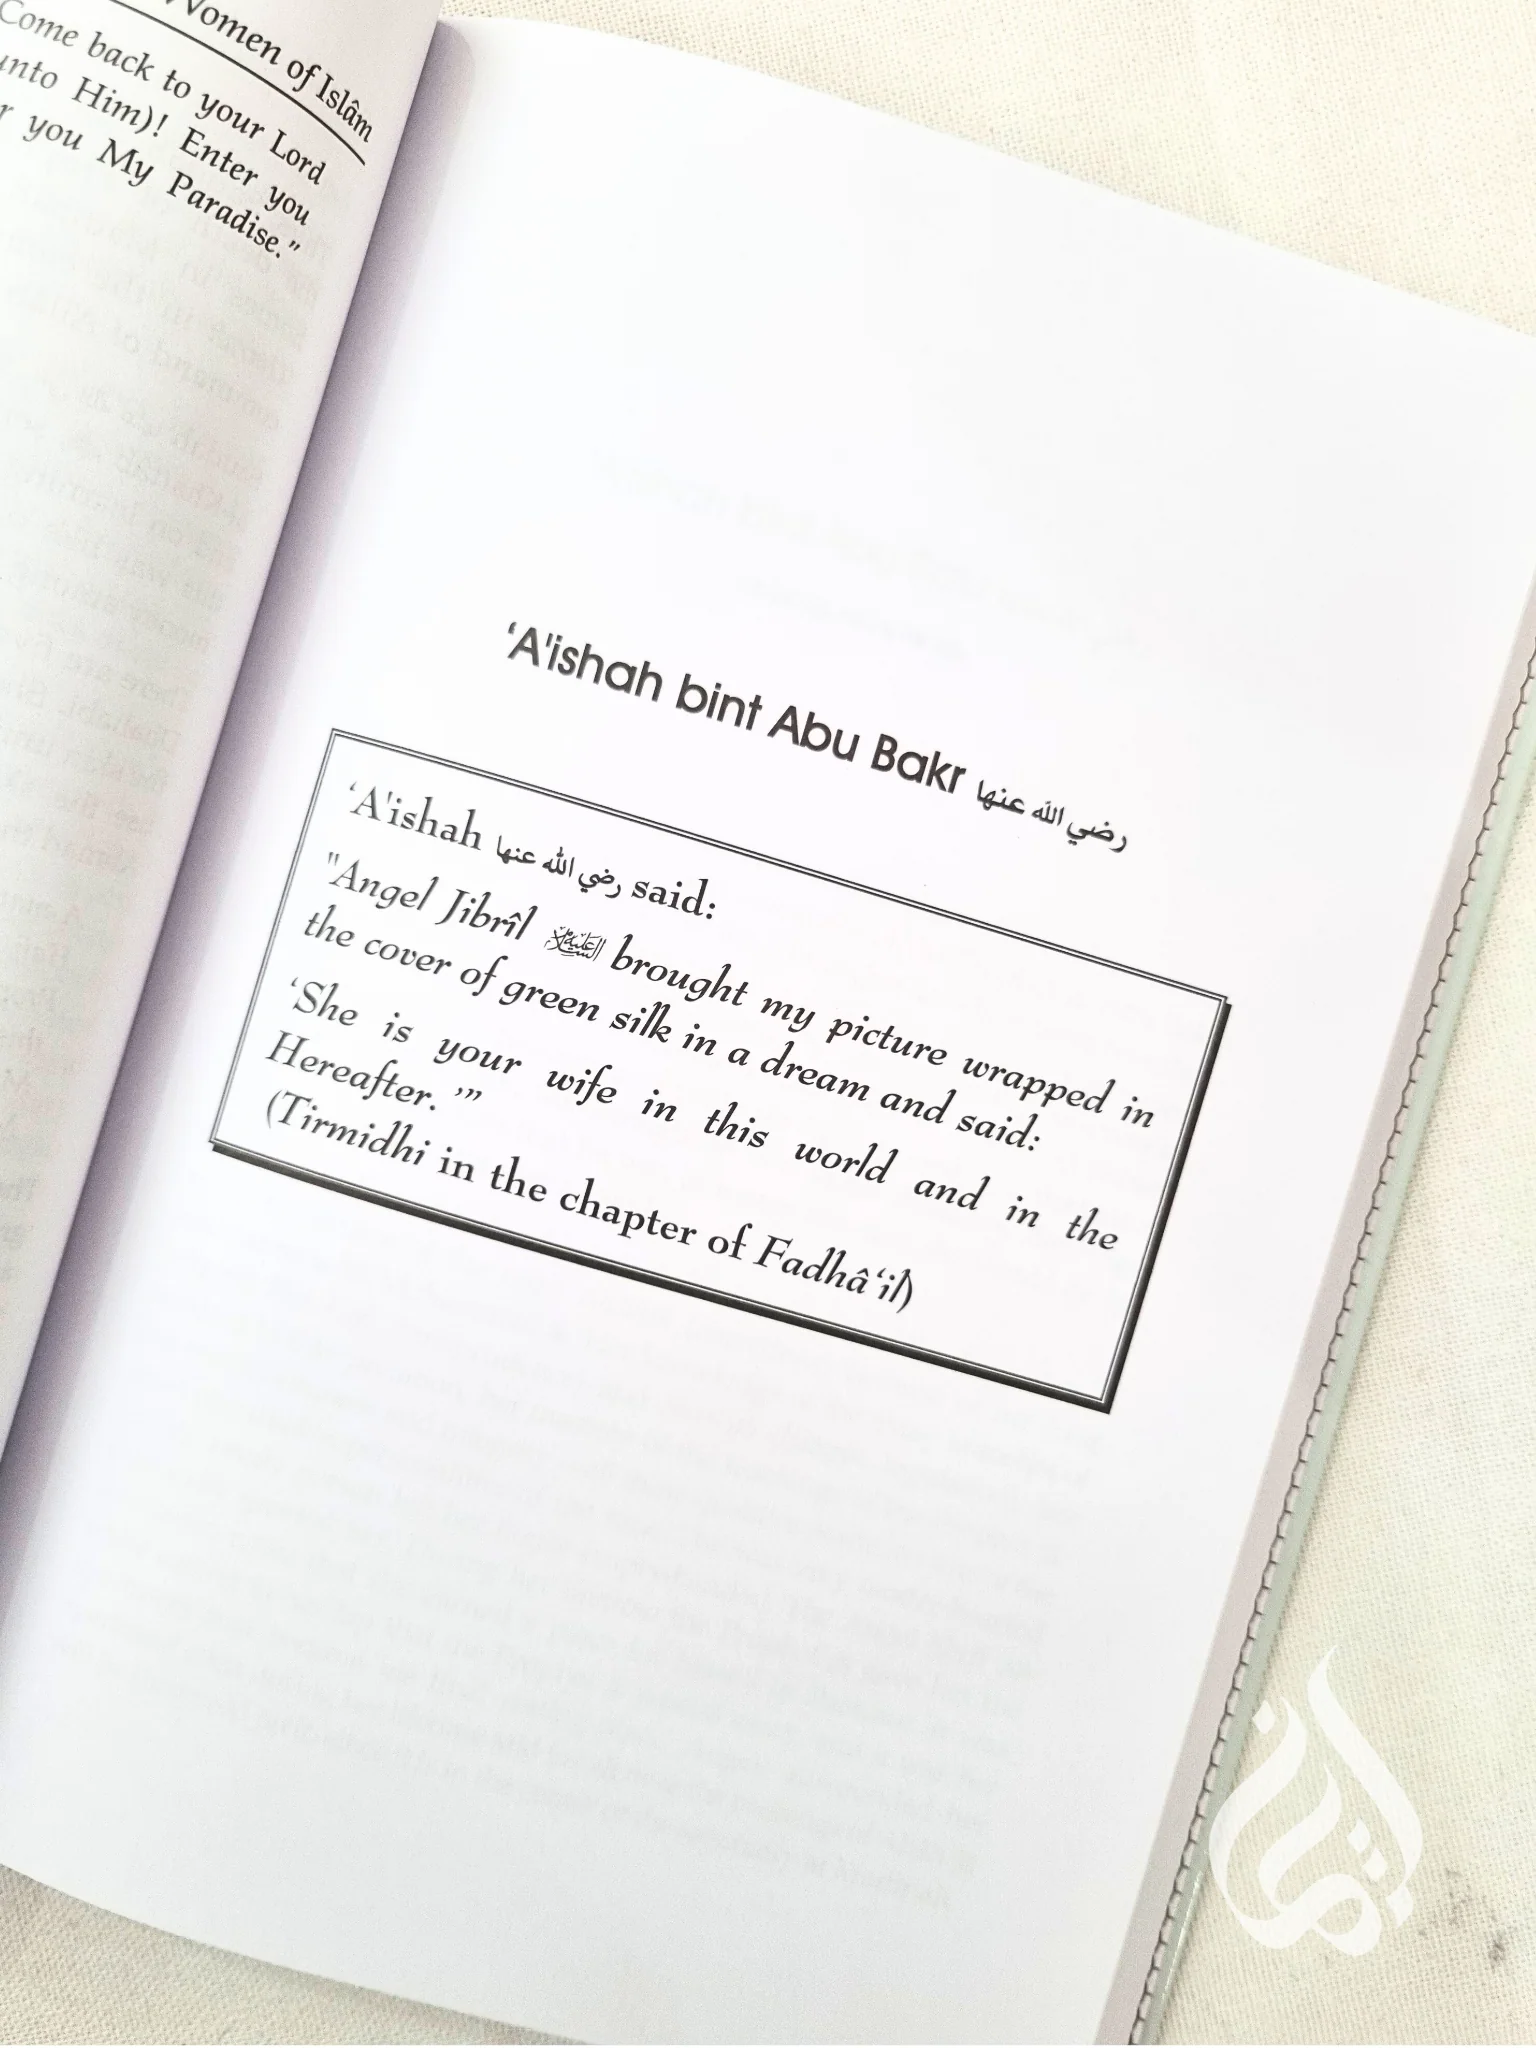 Women of Islâm
Come back to your Lord
unto Him)! Enter you
you My Paradise."
‘A'ishah bint Abu Bakr رضي الله عنها
‘A'ishah رضي الله عنها said:
"Angel Jibrîl عليه السلام brought my picture wrapped in
the cover of green silk in a dream and said:
‘She is your wife in this world and in the
Hereafter. ’”
(Tirmidhi in the chapter of Fadhâ‘il)